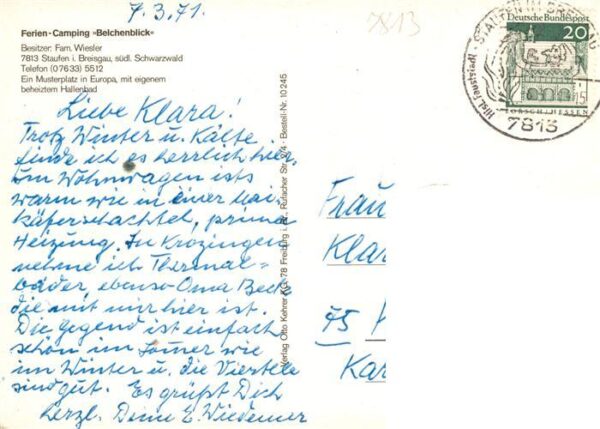 7.3.71.
7813
Ferien-Camping »Belchenblick«
Besitzer: Fam. Wiesler
7813 Staufen i. Breisgau, südl. Schwarzwald
Telefon (07633) 5512
Ein Musterplatz in Europa, mit eigenem
beheiztem Hallenbad
Liebe Klara!
Trotz Winter u. Kälte
finde ich es herrlich hier.
Im Wohnwagen ists
warm wie in einer Mai-
käferschachtel, prima
Heizung. In Krozingen
nehme ich Thermal=
bäder, ebenso Oma Beck,
die mit mir hier ist.
Die Gegend ist einfach
schön im Sommer wie
im Winter u. die Viertele
sind gut. Es grüßt Dich
herzl. Deine E. Wiedemer
Verlag Otto Kehrer KG · 78 Freiburg i. Br., Rufacher Str. 2/4 · Bestell-Nr. 10 245
Deutsche Bundespost
20
STAUFEN IM BREISGAU
Hist. Fauststadt
15
7813
Frau
Klar
75 K
Kar